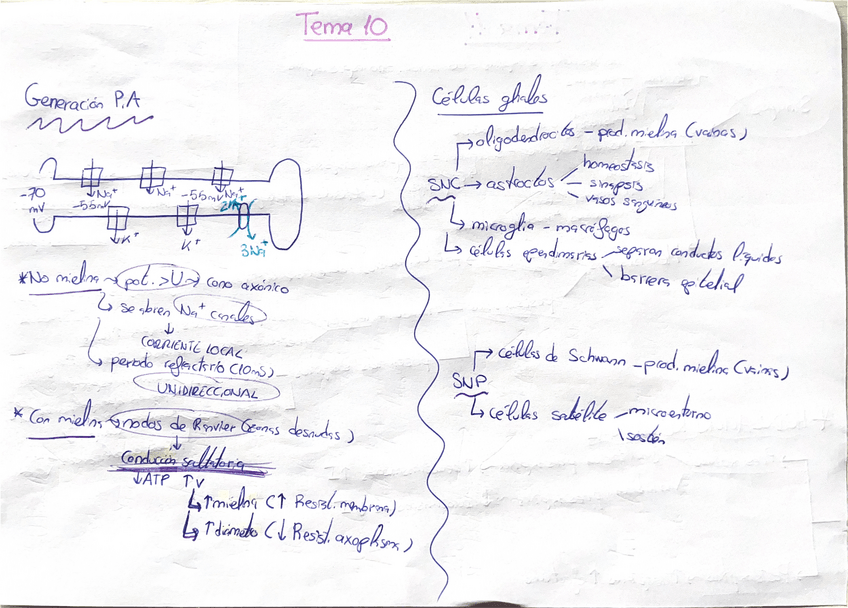 Tema 10
Generación P.A
Na⁺ Na⁺ Na⁺
-70 mV
-55mV
-55mV
2K⁺
K⁺ K⁺
3Na⁺
*No mielina → pot. > U → cono axónico
↳ se abren Na⁺ canales
↓
CORRIENTE LOCAL
↳ periodo refractario (10mS)
UNIDIRECCIONAL
* Con mielina → nodos de Ranvier (zonas desnudas)
↓
Conducción saltatoria
↓ATP ↑V
↳ ↑mielina (↑ Resist. membrana)
↳ ↑diámetro (↓ Resist. axoplasma)
Células gliales
→ oligodendrocitos - prod. mielina (vainas)
SNC → astrocitos - homeostasis
- sinapsis
- vasos sanguíneos
↳ microglia - macrófagos
↳ células ependimarias - separan conductos líquidos
\ barrera epitelial
→ células de Schwann - prod. mielina (vainas)
SNP
↳ células satélite - microentorno
\ sostén